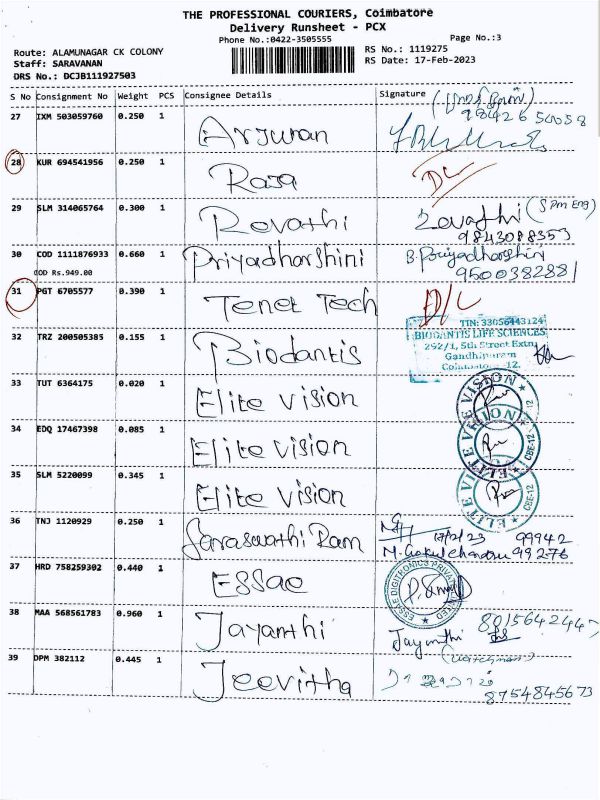 THE PROFESSIONAL COURIERS, Coimbatore
Delivery Runsheet - PCX
Phone No.:0422-3505555
Page No.:3
Route: ALAMUNAGAR CK COLONY
RS No.: 1119275
Staff: SARAVANAN
RS Date: 17-Feb-2023
DRS No.: DCJB111927503
S No Consignment No Weight PCS Consignee Details Signature
27 IXM 503059760 0.250 1 Arjunan
28 KUR 694541956 0.250 1 Raja D/L
29 SLM 314065764 0.300 1 Revathi Revathi (Spm Eng)
9843088353
30 COD 1111876933 0.660 1 Priyadharshini B. Priyadharshini
COD Rs.949.00 9500382881
31 PGT 6705577 0.390 1 Tenet Tech D/L
32 TRZ 200505385 0.155 1 Biodantis
TIN: 33056443124
BIODANTIS LIFE SCIENCES
292/1, 5th Street Extn,
Gandhipuram
Coimbatore-12.
33 TUT 6364175 0.020 1 Elite vision
ELITE VISION
34 EDQ 17467398 0.085 1 Elite vision
ELITE VISION CBE-12
35 SLM 5220099 0.345 1 Elite vision
ELITE VISION CBE-12
36 TNJ 1120929 0.250 1 Saraswathi Ram 17/2/23 99942
M. Gokul Chandru 99276
37 HRD 758259302 0.440 1 Essae
ESSAE DIGITRONICS PRIVATE LIMITED
38 MAA 568561783 0.960 1 Jayanthi Jayanthi
(watchman)
39 DPM 382112 0.445 1 Jeevitha
8754845673